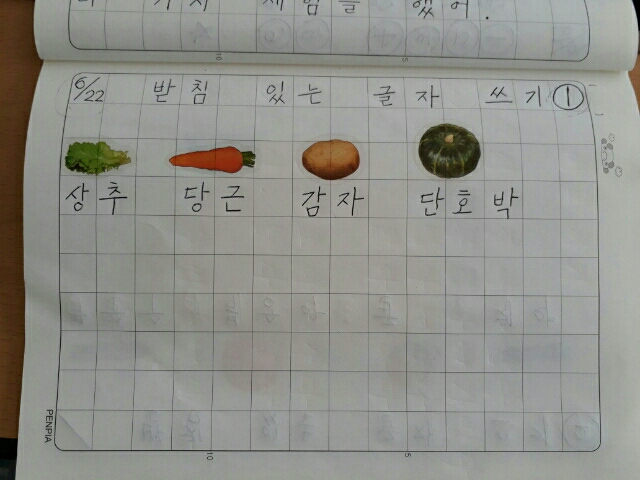 가지 체험을 했어.
6/22 받침 있는 글자 쓰기 ①
상추 당근 감자 단호박
10 5
PENPIA
10 5